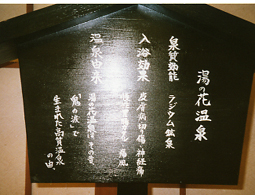 湯の花温泉
泉質効能
ラジウム鉱泉
入浴効果
皮膚病切り傷神経痛
痛風
温泉由来
湯の花温泉は、その昔
鬼の涙で
生まれた高質温泉
の由。